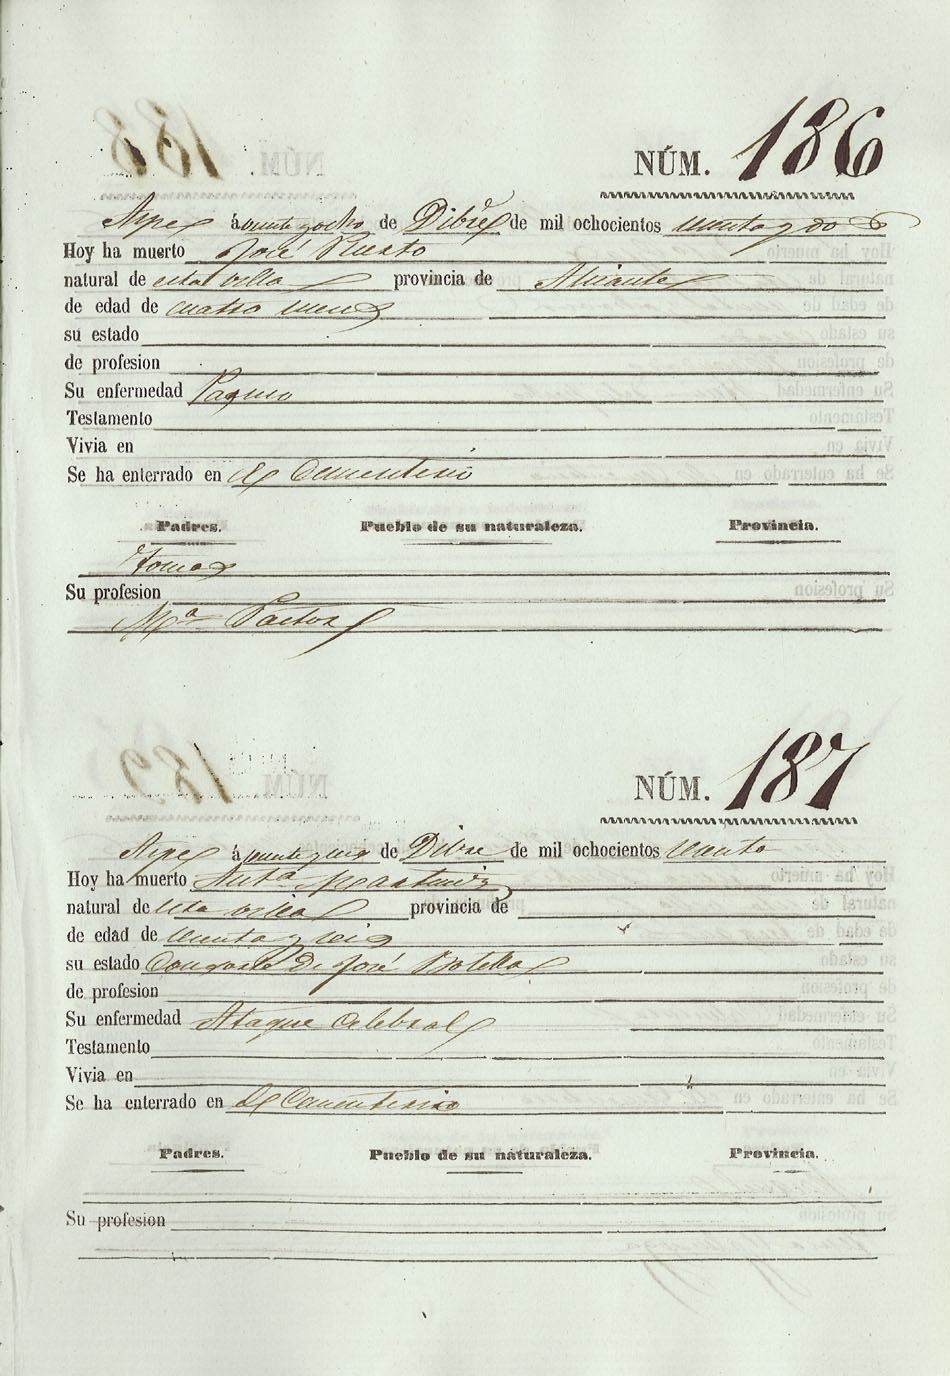 NÚM. 186
Aspe á veinte y ocho de Dibre de mil ochocientos sesenta y dos
Hoy ha muerto José
natural de esta villa provincia de Alicante
de edad de cuatro meses
su estado
de profesion
Su enfermedad
Testamento
Vivia en
Se ha enterrado en el Cementerio
Padres. Pueblo de su naturaleza. Provincia.
Tomas
Su profesion
Mª Pastor
NÚM. 187
Aspe á veinte y seis de Dibre de mil ochocientos sesenta
Hoy ha muerto Antª Martinez
natural de esta villa provincia de
de edad de sesenta y seis
su estado Consorte de José Botella
de profesion
Su enfermedad Ataque Celebral
Testamento
Vivia en
Se ha enterrado en el Cementerio
Padres. Pueblo de su naturaleza. Provincia.
Su profesion